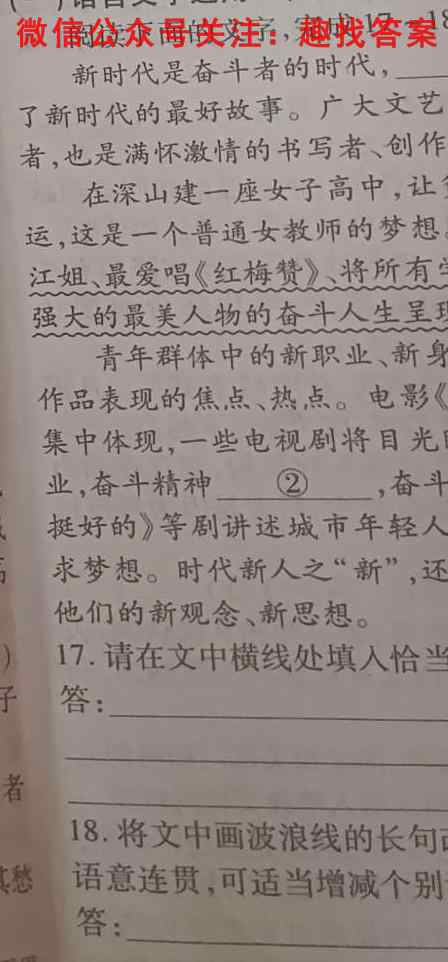 微信公众号关注：趣找答案
阅读下面的文字，完成17～18
新时代是奋斗者的时代，
了新时代的最好故事。广大文艺
者，也是满怀激情的书写者、创作
在深山建一座女子高中，让
运，这是一个普通女教师的梦想。
江姐、最爱唱《红梅赞》、将所有
强大的最美人物的奋斗人生呈现
青年群体中的新职业、新身
作品表现的焦点、热点。电影《
集中体现，一些电视剧将目光
业，奋斗精神 ② ，奋斗
挺好的》等剧讲述城市年轻人
求梦想。时代新人之“新”，还
他们的新观念、新思想。
17. 请在文中横线处填入恰当
答：
18. 将文中画波浪线的长句
语意连贯，可适当增减个别
答：
)
子
者
其愁